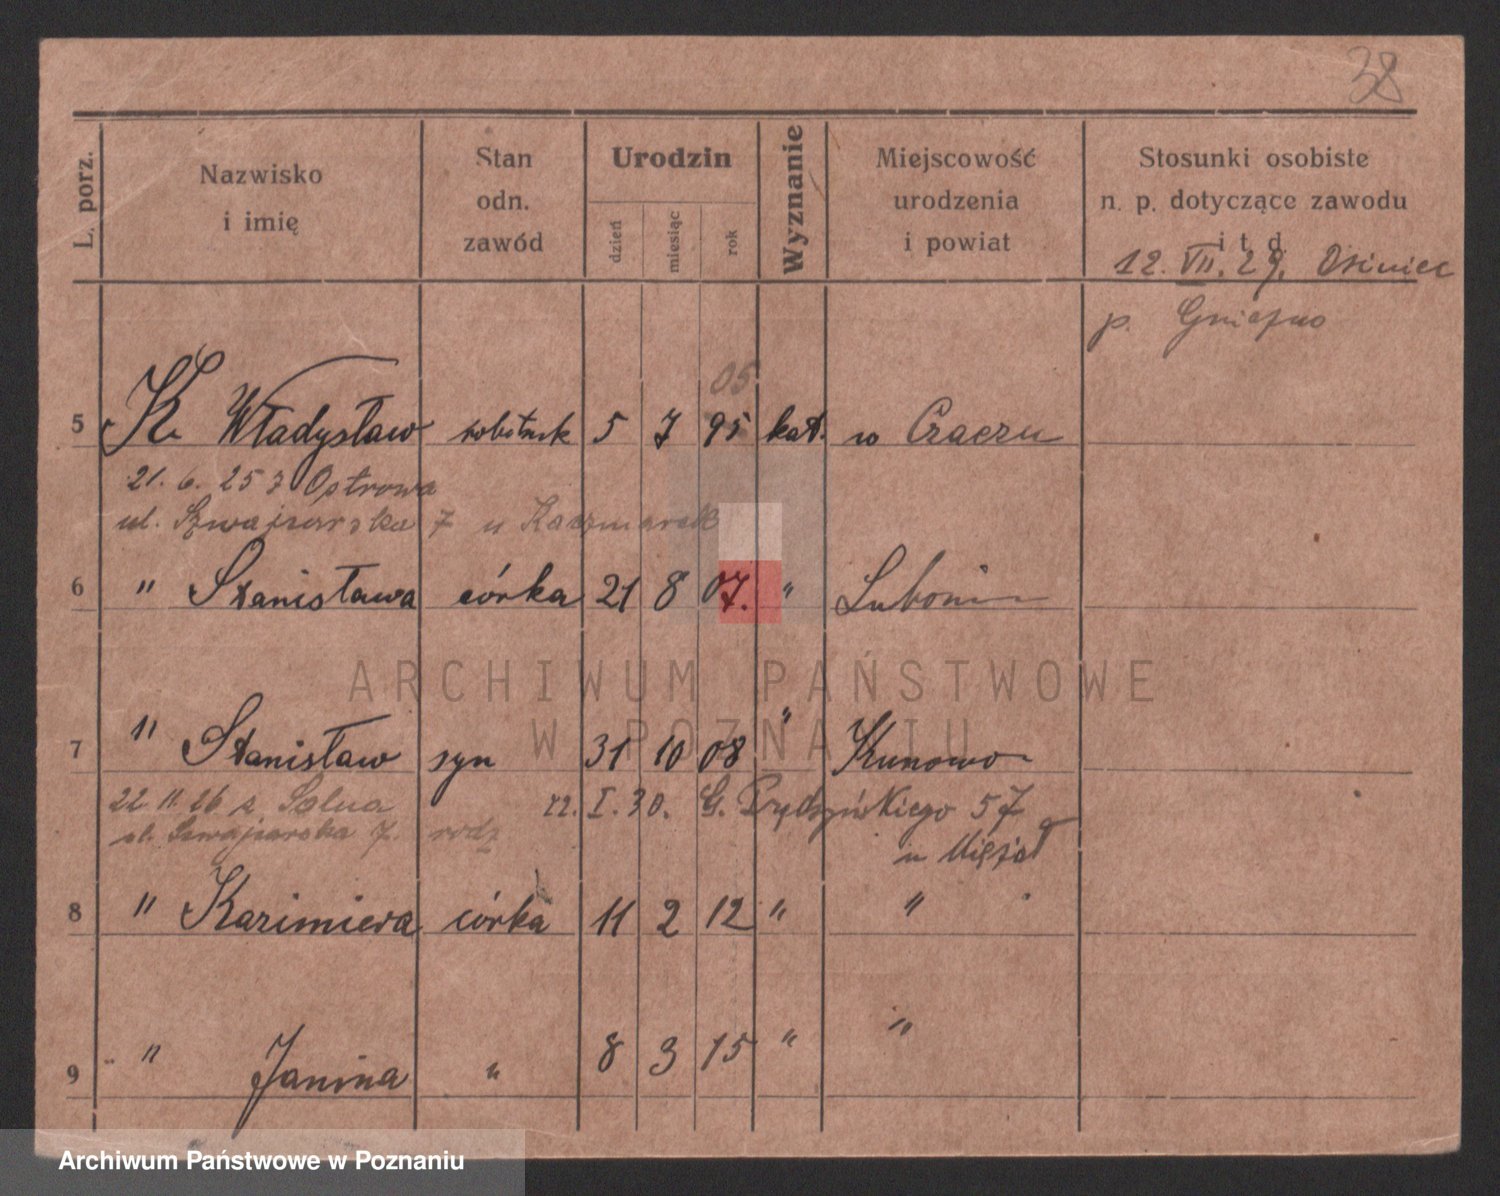 38
L. porz.
Nazwisko
i imię
Stan
odn.
zawód
Urodzin
dzień
miesiąc
rok
Wyznanie
Miejscowość
urodzenia
i powiat
Stosunki osobiste
n. p. dotyczące zawodu
i t d
12. VII. 29. Osiniec
p. Gniezno
05
5 K. Władysław robotnik 5 7 95 kat. w Czaczu
21. 6. 25 z Ostrowa
ul. Szwajcarska 7 u Kaczmarek
6 " Stanisława córka 21 8 07. " Lubonia
ARCHIWUM PAŃSTWOWE
W POZNANIU
7 " Stanisław syn 31 10 08 " Kunowo
22 11. 26 z
22. I. 30. G. Prądzyńskiego 57
ul. Szwajcarska 7. rodz
u
8 " Kazimiera córka 11 2 12 " "
9 " Janina " 8 3 15 " "
Archiwum Państwowe w Poznaniu